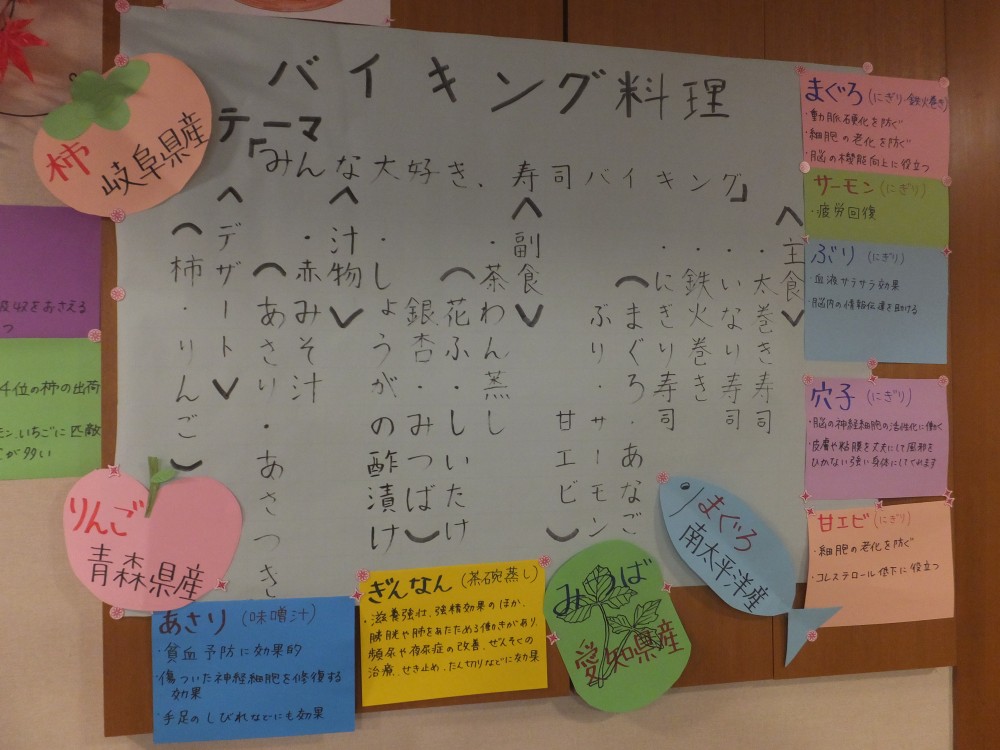 バイキング料理
テーマ
「みんな大好き、寿司バイキング」
＜主食＞
・太巻き寿司
・いなり寿司
・鉄火巻き
・にぎり寿司
（まぐろ・あなご
ぶり・サーモン
甘エビ）
＜副食＞
・茶わん蒸し
（花ふ・しいたけ
銀杏・みつば）
・しょうがの酢漬け
＜汁物＞
・赤みそ汁
（あさり・あさつき
＜デザート＞
（柿・りんご）
柿
岐阜県産
りんご
青森県産
みつば
愛知県産
まぐろ
南太平洋産
まぐろ（にぎり・鉄火巻き）
・動脈硬化を防ぐ
・細胞の老化を防ぐ
・脳の機能向上に役立つ
サーモン（にぎり）
・疲労回復
ぶり（にぎり）
・血液サラサラ効果
・脳内の情報伝達を助ける
穴子（にぎり）
・脳の神経細胞の活性化に働く
・皮膚や粘膜を丈夫にして風邪を
ひかない強い身体にしてくれます
甘エビ（にぎり）
・細胞の老化を防ぐ
・コレステロール低下に役立つ
あさり（味噌汁）
・貧血予防に効果的
・傷ついた神経細胞を修復する
効果
・手足のしびれなどにも効果
ぎんなん（茶碗蒸し）
・滋養強壮、強精効果のほか、
膀胱や肺をあたためる働きがあり、
頻尿や夜尿症の改善、ぜんそくの
治療、せき止め、たん切りなどに効果
収をおさえる
つ
4位の柿の出荷
モン、いちごに匹敵
が多い